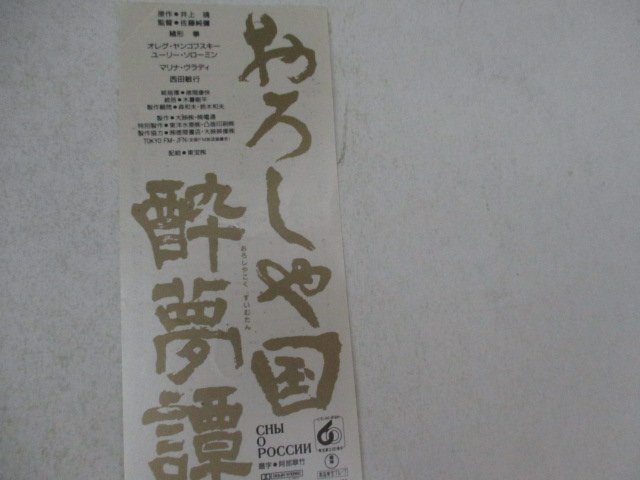 原作●井上 靖
監督●佐藤純彌
緒形 拳
オレグ・ヤンコフスキー
ユーリー・ソローミン
マリナ・ヴラディ
西田敏行
総指揮●徳間康快
製作●大映㈱・㈱電通
TOKYO FM・JFN
配給●東宝㈱
おろしや国
酔夢譚
おろしやこく すいむたん
СНЫ
О
РОССИИ
題字●阿部翠竹
DOLBY STEREO